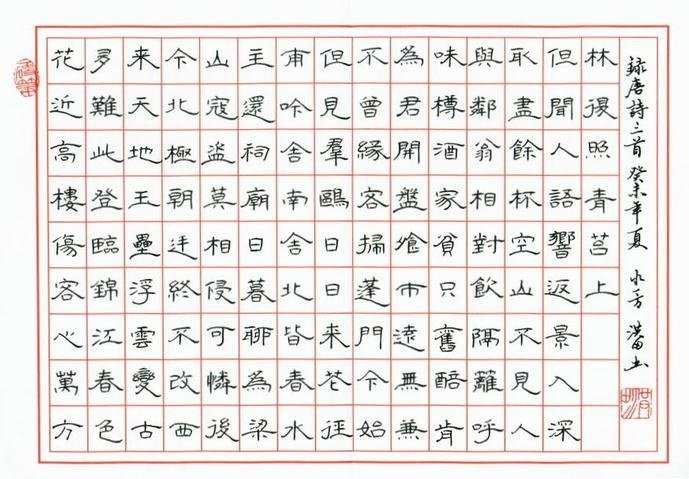 花近高樓傷客心萬方
多難此登臨錦江春色
来天地玉壘浮雲變古
今北極朝廷終不改西
山寇盜莫相侵可憐後
主還祠廟日暮聊為梁
甫吟舍南舍北皆春水
但見羣鷗日日来花徑
不曾緣客掃蓬門今始
為君開盤飧市遠無兼
味樽酒家貧只舊醅肯
與鄰翁相對飲隔籬呼
取盡餘杯空山不見人
但聞人語響返景入深
林復照青苔上
錄唐詩三首癸未年夏